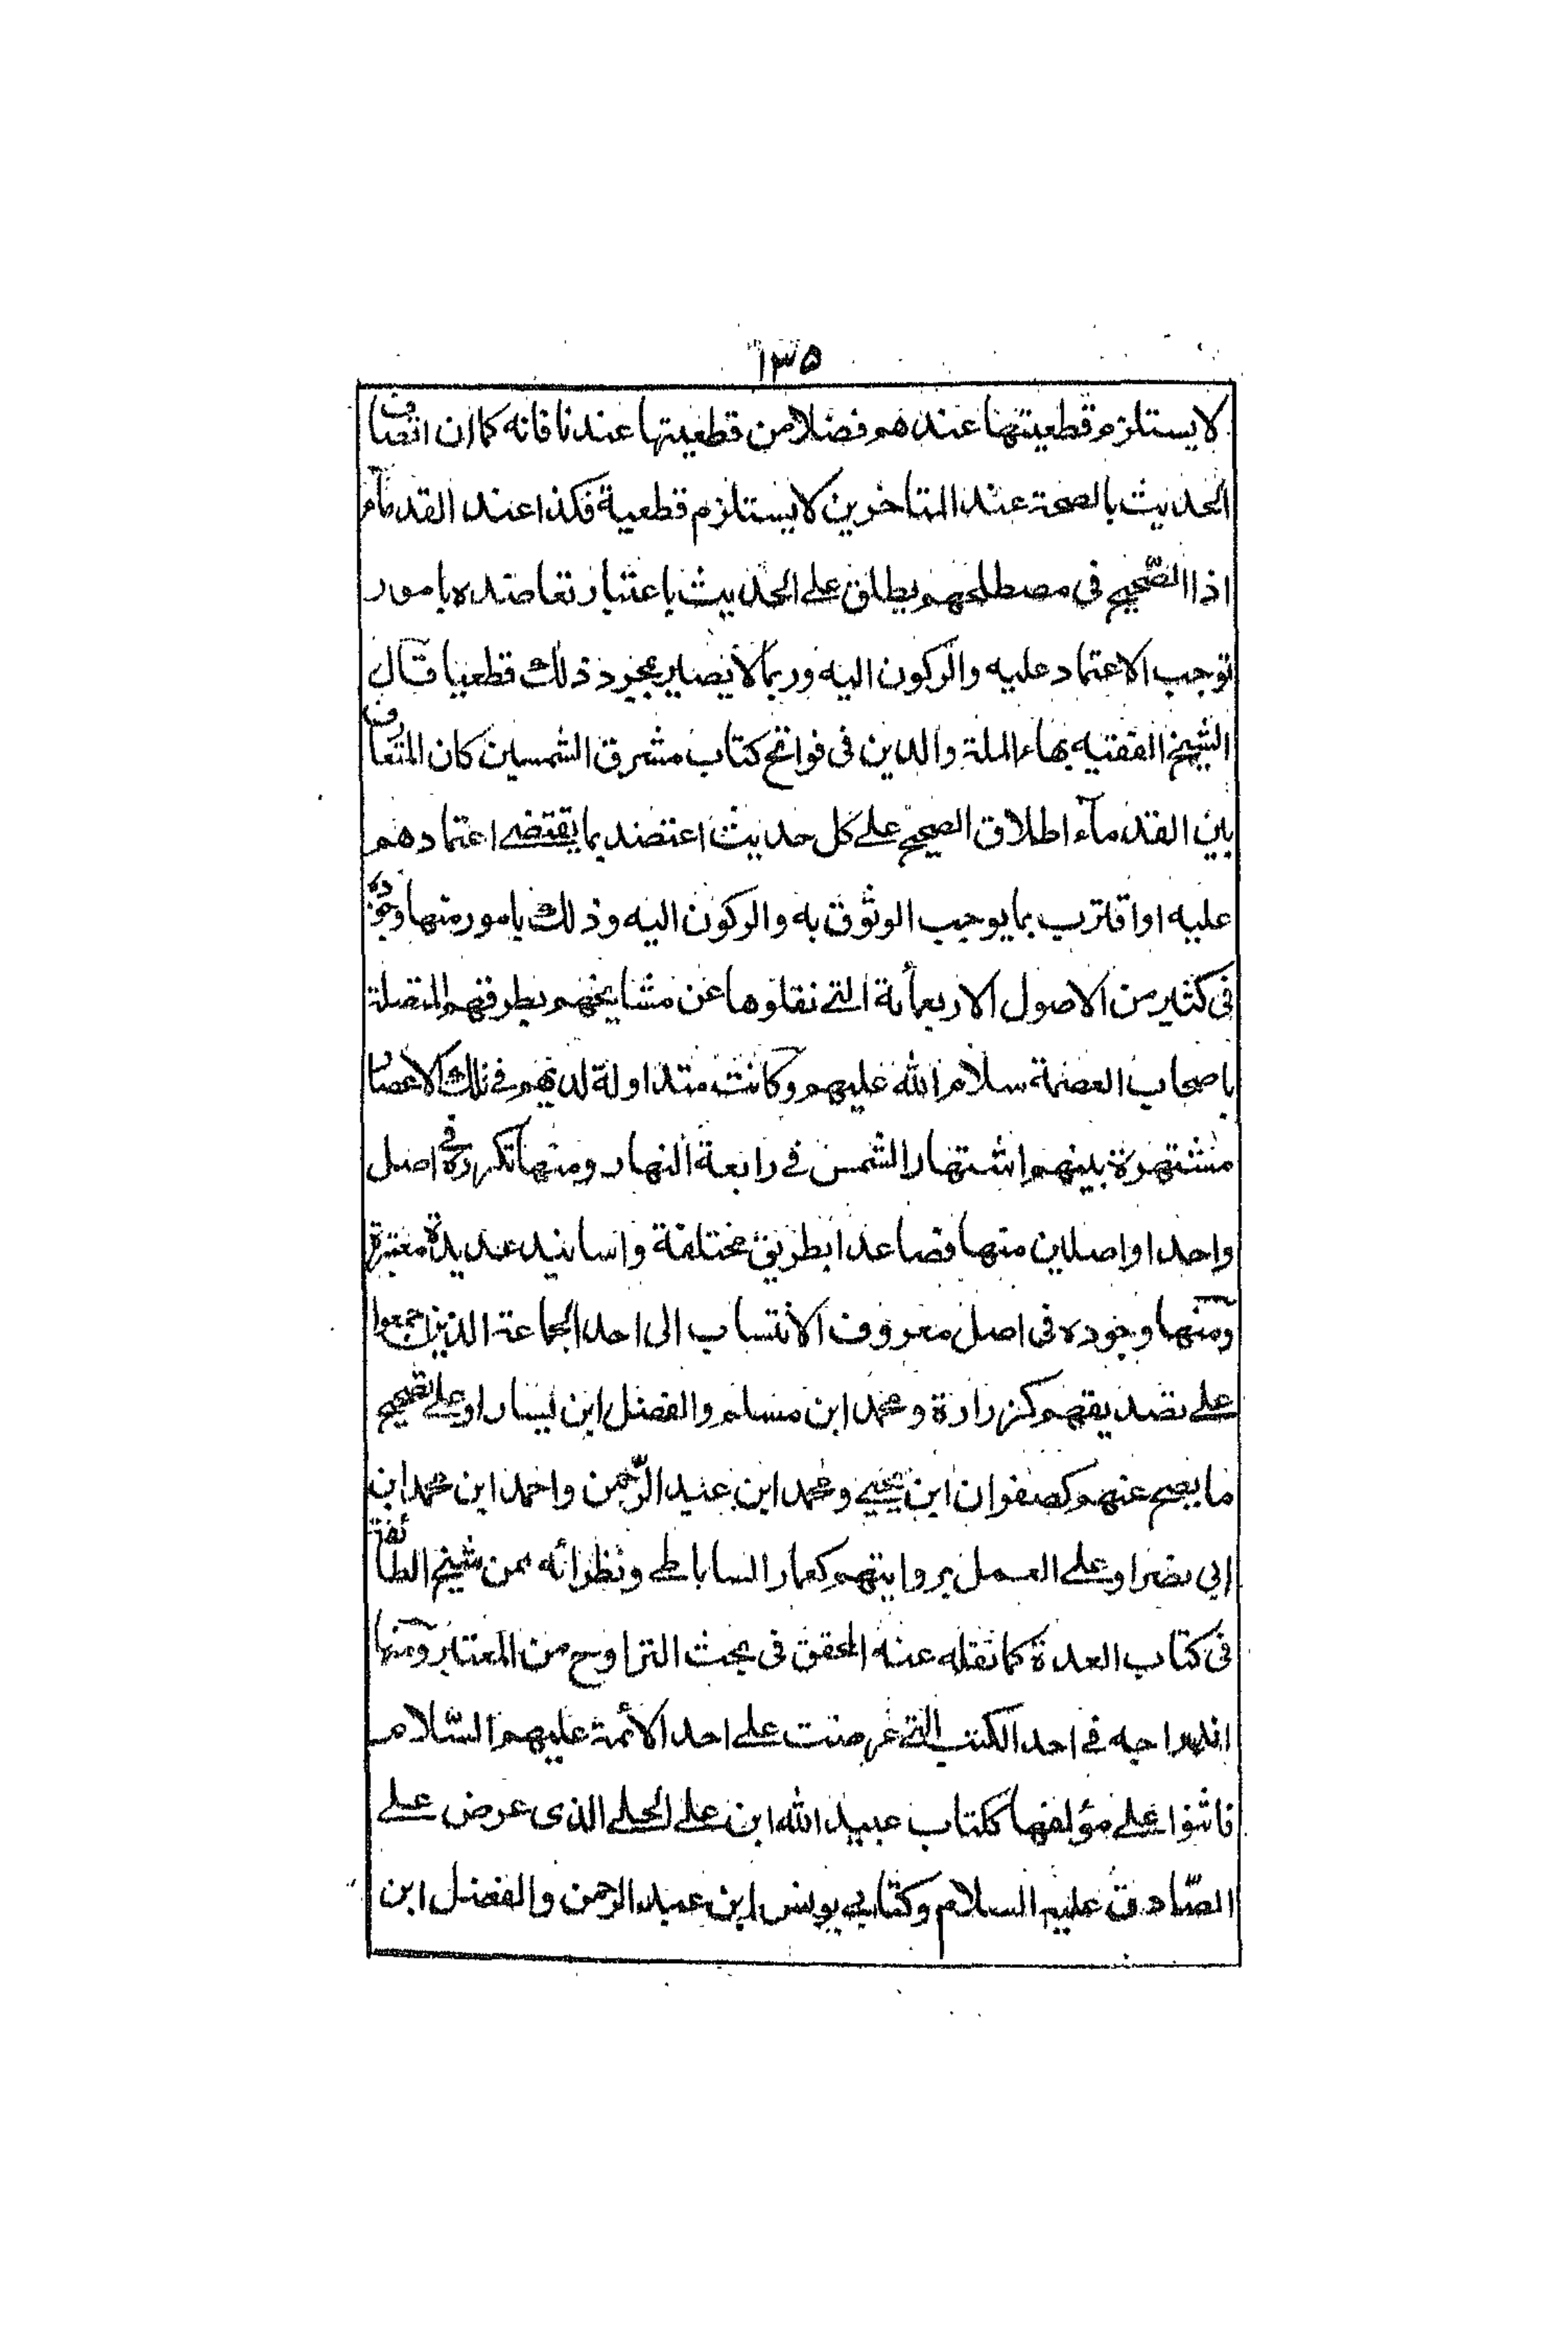 ١٣٥
لا يستلزم قطعيتها عندهم فضلا من قطعيتها عندنا فانه كما ان اتصاف
الحديث بالصحة عند المتاخرين لا يستلزم قطعية فكذا عند القدمآء
اذا الصّحيح فى مصطلحهم يطلق على الحديث باعتبار تعاضده بامور
توجب الاعتماد عليه والركون اليه وربما لا يصير بمجرد ذلك قطعيا قال
الشيخ الفقيه بهاء الملة والدين فى فواتح كتاب مشرق الشمسين كان المتعارف
بين القدمآء اطلاق الصحيح على كل حديث اعتضد بما يقتضى اعتمادهم
عليه او اقترب بما يوجب الوثوق به والركون اليه وذلك بامور منها وجوده
فى كثير من الاصول الاربعمأئة التى نقلوها عن مشايخهم بطرقهم المتصلة
باصحاب العصمة سلام الله عليهم وكانت متداولة لديهم فى تلك الاعصار
مشتهرة بينهم اشتهار الشمس فى رابعة النهار ومنها تكرره فى اصل
واحد او اصلين منها فصاعدا بطريق مختلفة واسانيد عديدة معتبرة
ومنها وجوده فى اصل معروف الانتساب الى احد الجماعة الذين جمعوا
على تصديقهم كزرارة ومحمد ابن مسلم والفضل ابن يسار او على تصحيح
ما يصح عنهم كصفوان ابن يحيى ومحمد ابن عبد الرّحمن واحمد ابن محمد ابن
ابى نصر او على العمل بروايتهم كعمار الساباطى ونظرائه ممن شيخ الطّائفة
فى كتاب العدة كما نقله عنه المحقق فى بحث التراوح من المعتبر ومنها
اندراجه فى احد الكتب التى عرضت على احد الأئمة عليهم السّلام
فاثنوا على مؤلفها ككتاب عبيد الله ابن على الحلبى الذى عرض على
الصّادق عليه السلام وكتابى يونس ابن عبد الرحمن والفضل ابن